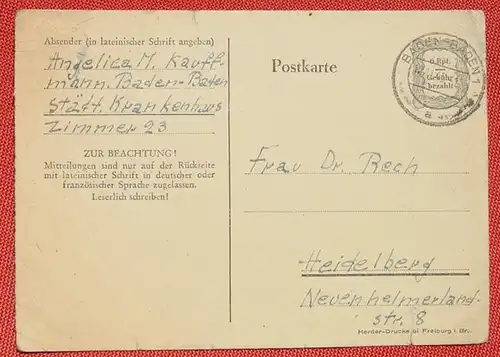 Absender (in lateinischer Schrift angeben)
Angelica M. Kauff-
mann. Baden-Baden
Städt. Krankenhaus
Zimmer 23
ZUR BEACHTUNG!
Mitteilungen sind nur auf der Rückseite
mit lateinischer Schrift in deutscher oder
französischer Sprache zugelassen.
Leserlich schreiben!
Postkarte
BADEN-BADEN
6 Rpf.
Gebühr
bezahlt
a
Frau Dr. Rech
Heidelberg
Neuenheimerland-
str. 8
Herder-Druck Freiburg i. Br.